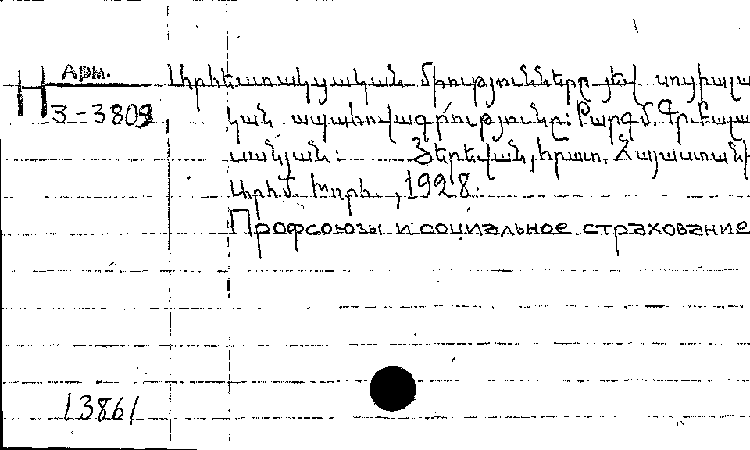 Арм.
Արհեստակցական միությունները յեվ սոցիալա
Н 3-3809
կան ապահովագրությունը: Թարգմ. Գր.
սանյան: Յերեվան, հրատ. Հայաստանի
Արհմ. Խորհ., 1928.
Профсоюзы и социальное страхование
13861